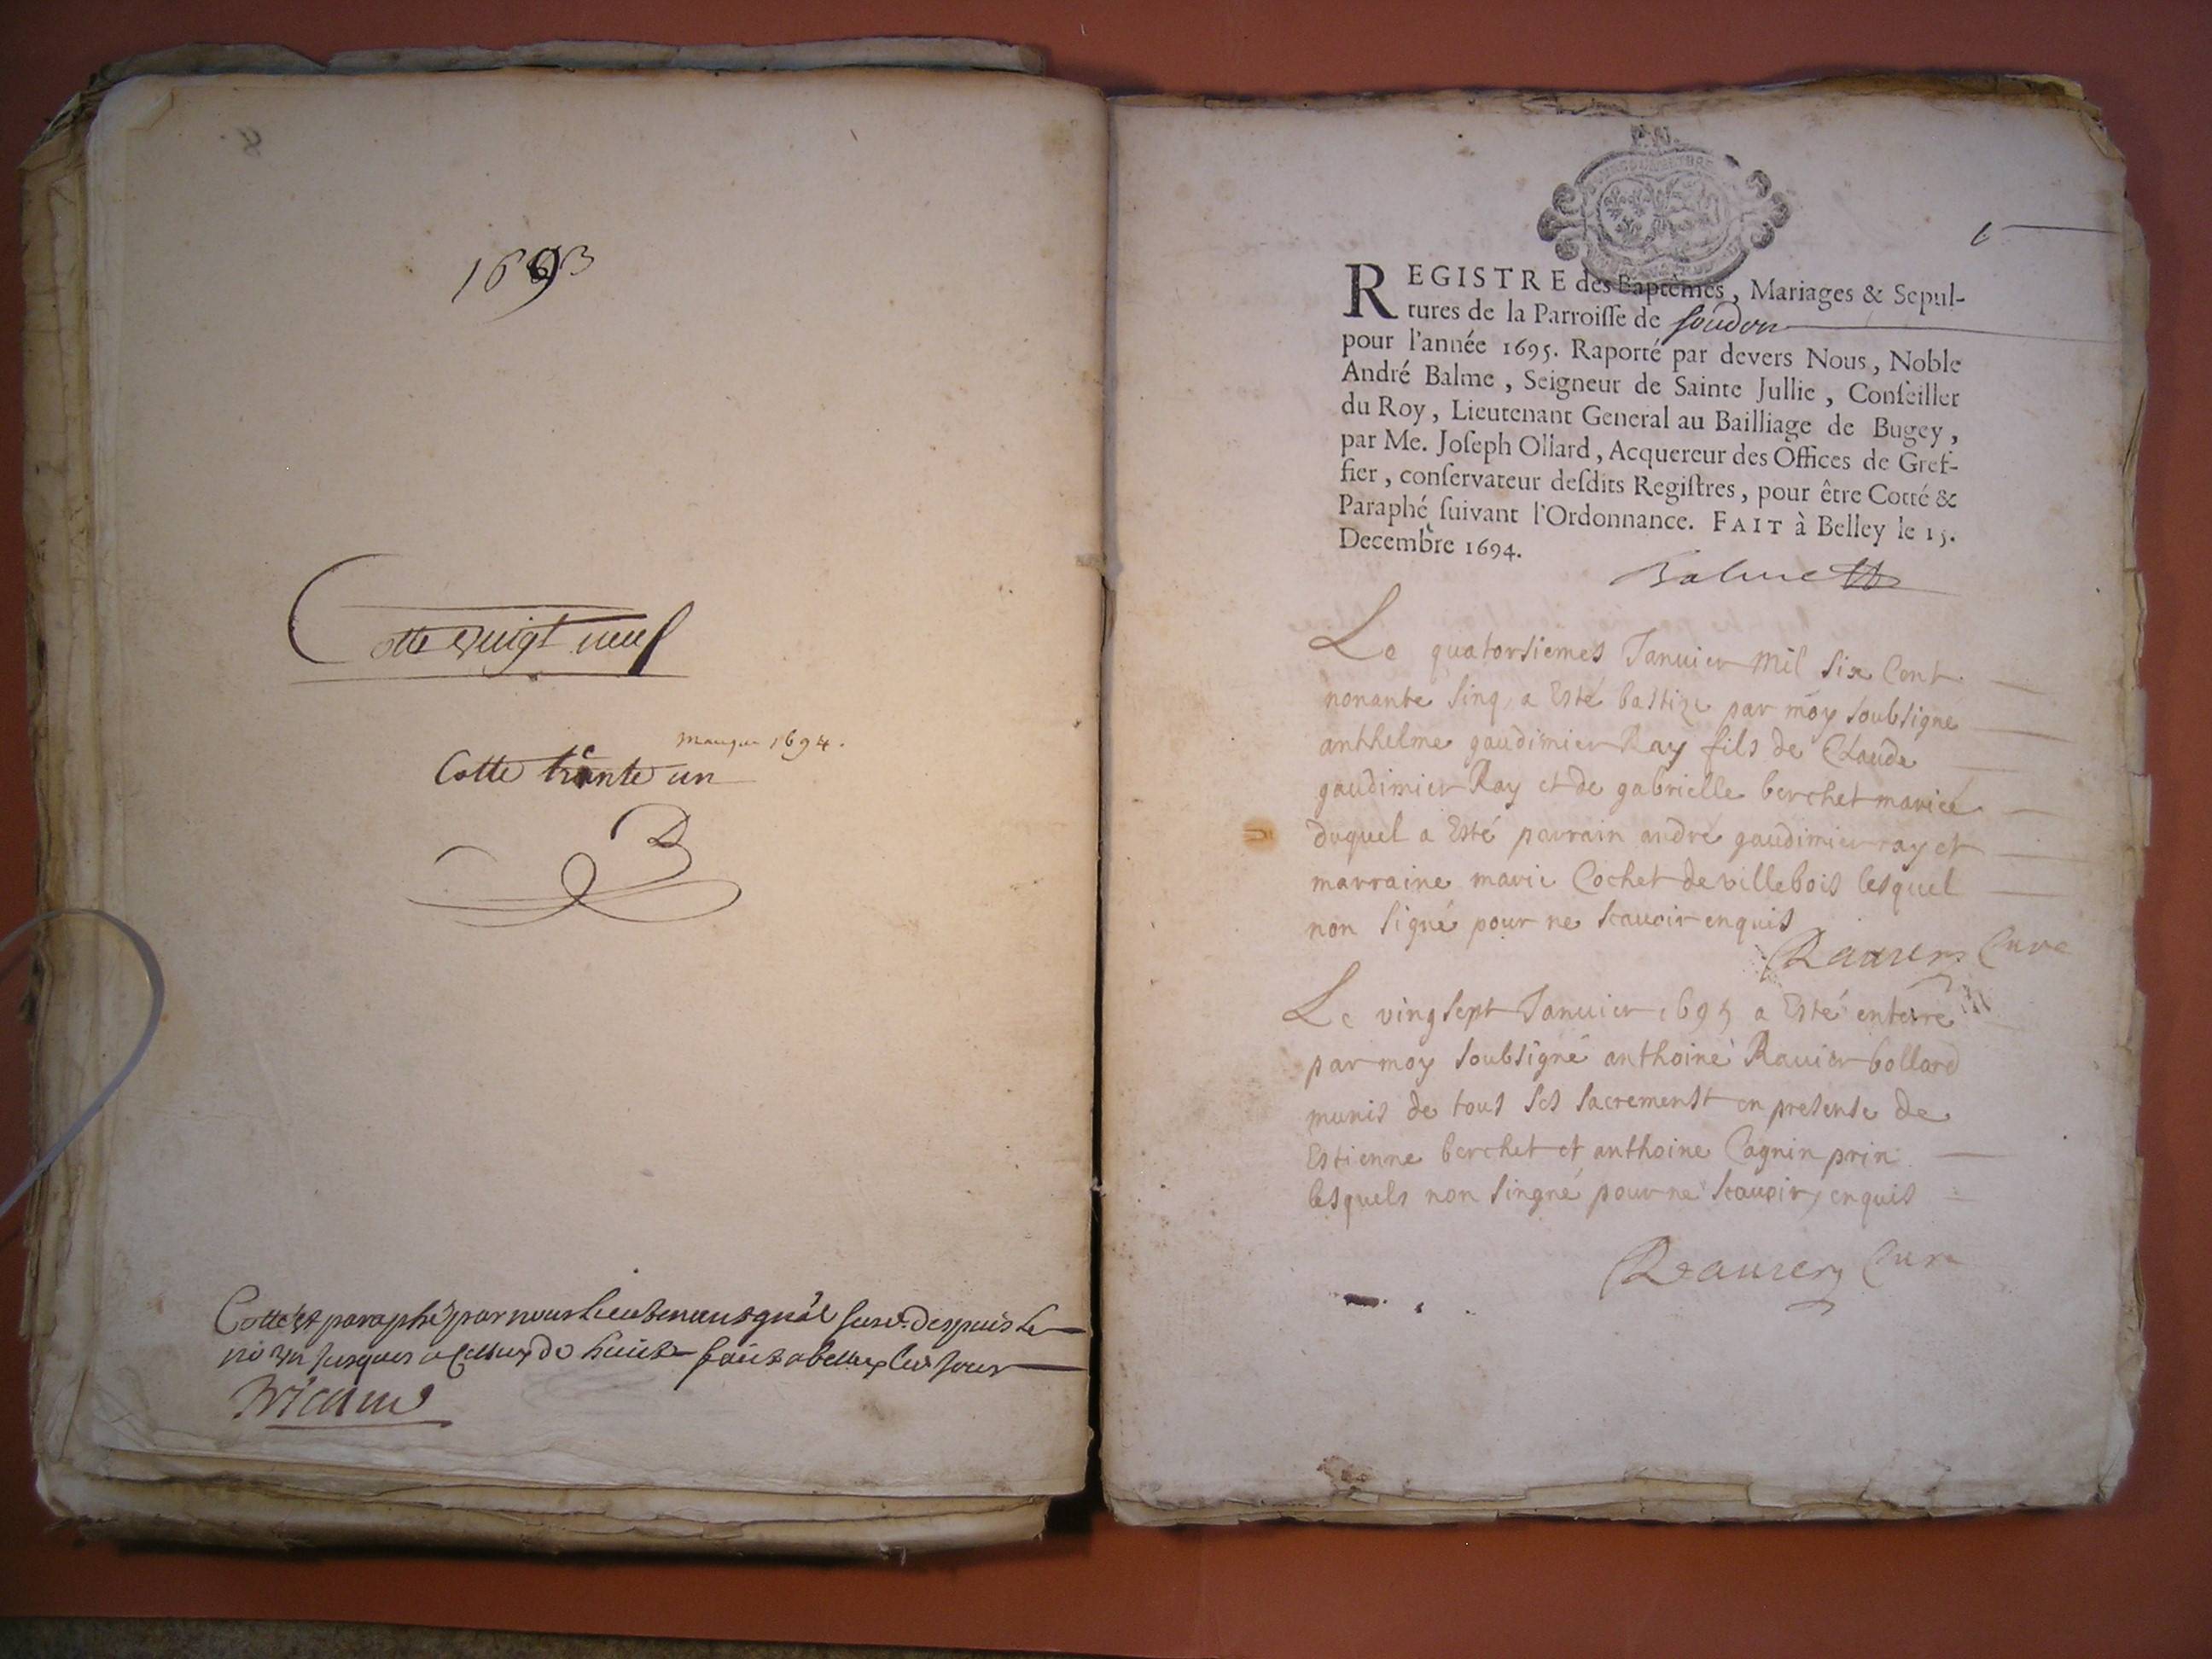 1693
Cotte vingt neuf
manque 1694.
Cotte trente un
B
Cotté et paraphé par nous Lieutenant gnal susd. despuis le
no un jusques a Celluy de huict fait a belley led. jour
REGISTRE des Baptêmes, Mariages & Sepul-
tures de la Parroisse de soudon
pour l'année 1695. Raporté par devers Nous, Noble
André Balme, Seigneur de Sainte Jullie, Conseiller
du Roy, Lieutenant General au Bailliage de Bugey,
par Me. Joseph Ollard, Acquereur des Offices de Gref-
fier, conservateur desdits Registres, pour être Cotté &
Paraphé suivant l'Ordonnance. FAIT à Belley le 15.
Decembre 1694.
Balme
Le quatorsiemes Januier mil six Cent
nonante sinq a Esté bastize par moy soubsigne
anthelme gaudimier Ray fils de Claude
gaudimier Ray et de gabrielle berchet mariée
duquel a Esté parrain andré gaudimier ray et
marraine marie Cochet de villebois lesquel
non signé pour ne scauoir enquis
Cure
Le vingsept Januier 1695 a Esté enterré
par moy soubsigné anthoine Rauier bollard
munis de tous ses sacrements en presense de
Estienne berchet et anthoine Cagnin prin
lesquels non singné pour ne scauoir, enquis
Cure